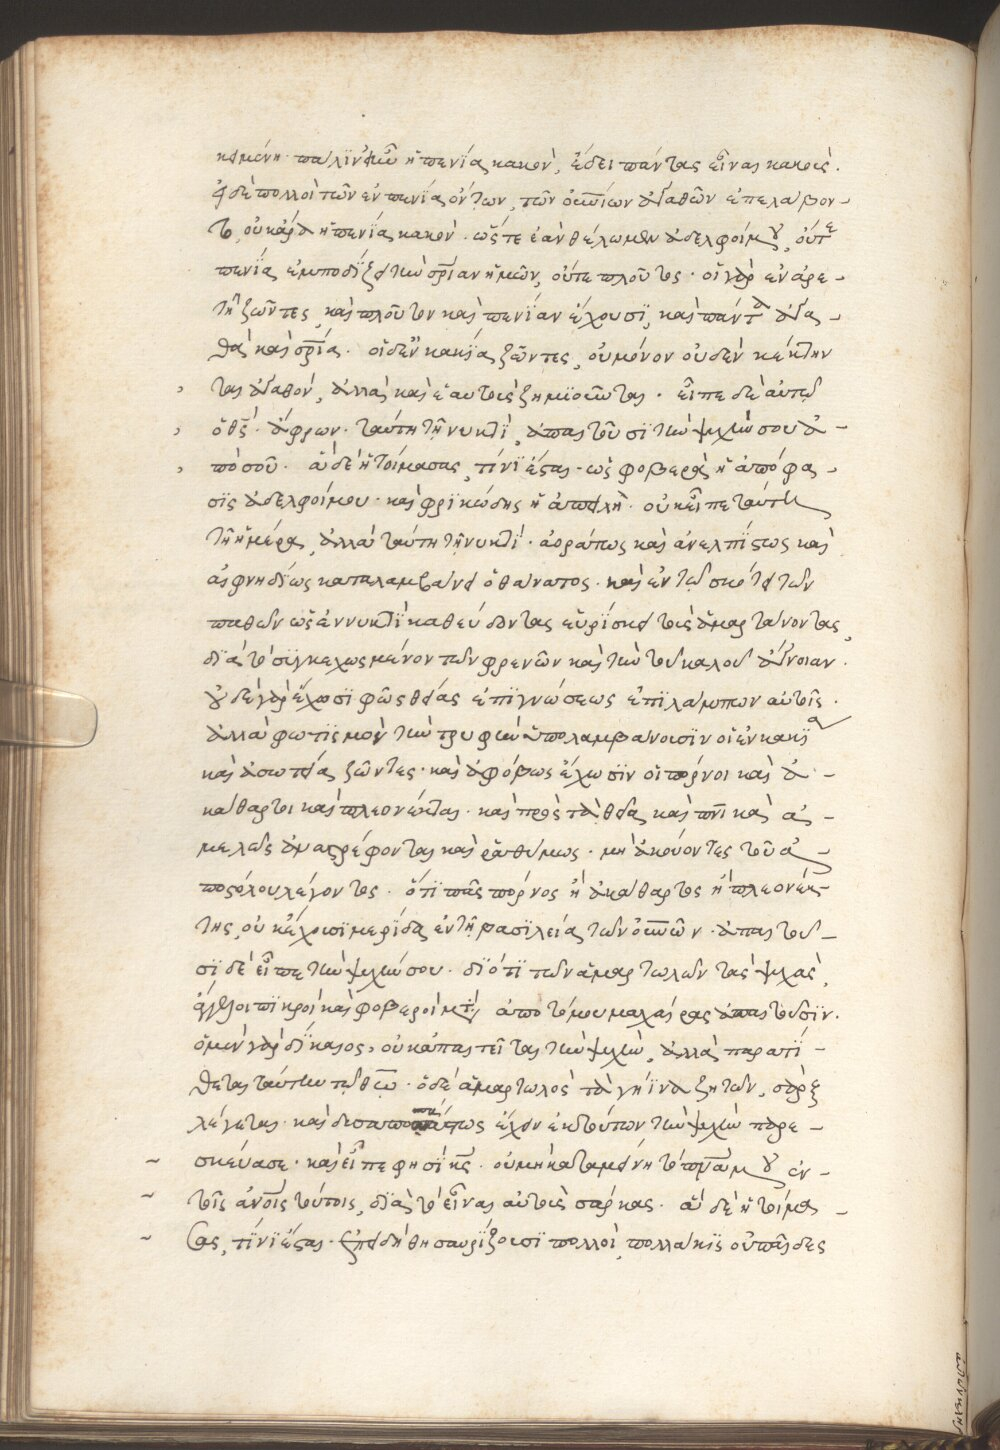 κειμένη· πάλιν εἰ ἦν ἡ πενία κακὸν, ἔδει πάντας εἶναι κακούς.
εἰ δὲ πολλοὶ τῶν ἐν πενία ὄντων, τῶν οὐνίων ἀγαθῶν ἐπελάβον-
το, οὐκ ἄρα ἡ πενία κακόν. ὥστε ἐὰν θέλωμεν ἀδελφοί μου, οὔτε
πενία ἐμποδίζει τὴν σρίαν ἡμῶν, οὔτε πλοῦτος· οἱ γὰρ ἐν ἀρε-
τῆ ζῶντες, καὶ πλοῦτον καὶ πενίαν ἔχουσι, καὶ πάντα ἀγα-
θὰ καὶ σρία. οἱ δ' ἐν κακία ζῶντες, οὐ μόνον οὐδὲν κέκτην
ται ἀγαθόν, ἀλλὰ καὶ ἑαυτοὺς ζημιοῦνται. εἶπε δὲ αὐτῷ
ὁ θς· ἄφρων· ταύτη τῆ νυκτὶ, ἀπαιτοῦσι τὴν ψυχήν σου ἀ-
πὸ σοῦ· ἃ δὲ ἡτοίμασας, τίνι ἔσται· ὡς φοβερὰ ἡ ἀπόφα-
σις ἀδελφοί μου· καὶ φρικώδης ἡ ἀπειλή· οὐκ εἶπε ταύτη
τῆ ἡμέρα, ἀλλὰ ταύτη τῆ νυκτί· ἀοράτως καὶ ἀνελπίστως καὶ
αἰφνηδίως καταλαμβάνει ὁ θάνατος· καὶ ἐν τῷ σκότει τῶν
παθῶν ὡς ἐν νυκτὶ καθεύδοντας εὑρίσκει τοὺς ἁμαρτάνοντας,
διὰ τὸ συγκεχωσμένον τῶν φρενῶν καὶ τὴν τοῦ καλοῦ ἄγνοιαν.
οὐδὲ γὰρ ἔχουσι φῶς θείας ἐπιγνώσεως ἐπιλάμπων αὐτοῖς.
ἀλλὰ φωτισμὸν τὴν τρυφὴν ὑπολαμβάνουσιν οἱ ἐν κακία
καὶ ἀσωτεία ζῶντες· καὶ ἀφόβως ἔχωσιν οἱ πόρνοι καὶ ἀ-
κάθαρτοι καὶ πλεονέκται· καὶ πρὸς τὰ θεῖα καὶ πνικὰ ἀ-
μελῶς ἀναστρέφονται καὶ ραθύμως· μὴ ἀκούοντες τοῦ ἀ-
ποστόλου λέγοντος· ὅτι πᾶς πόρνος ἢ ἀκάθαρτος ἢ πλεονέκ-
της, οὐκ ἔχουσι μερίδα ἐν τῆ βασιλεία τῶν οὐνῶν· ἀπαιτοῦ-
σι δὲ εἶπε τὴν ψυχήν σου· διότι τῶν ἁμαρτωλῶν τὰς ψυχὰς,
ἄγγελοι πικροὶ καὶ φοβεροὶ ἀποτόμου μαχαίρας ἀπαιτοῦσιν.
ὁ μὲν γὰρ δίκαιος, οὐκ ἀπαιτεῖται τὴν ψυχὴν, ἀλλὰ παρατί-
θεται ταύτην τῷ θω· ὁ δὲ ἁμαρτωλὸς τὰ γήϊνα ζητῶν, σὰρξ
λέγεται· καὶ δυσαποσπάστως ἔχειν ἐκ τούτων τὴν ψυχὴν παρε-
σκεύασε· καὶ εἶπε φησὶ κς· οὐ μὴ καταμείνη τὸ πνα μου ἐν
τοῖς ανοις τούτοις, διὰ τὸ εἶναι αὐτοὺς σάρκας. ἃ δὲ ἡτοίμα-
σας, τίνι ἔσται. ἐπειδὴ θησαυρίζουσι πολλοὶ, πολλάκις οὐ παῖδες